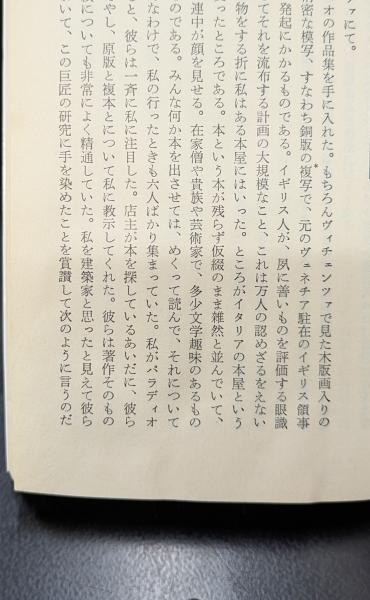 ァにて。
オの作品集を手に入れた。もちろんヴィチェンツァで見た木版画入りの
密な模写、すなわち銅版の複写で、元のヴェネチア駐在のイギリス領事
発起にかかるものである。イギリス人が、夙に善いものを評価する眼識
てそれを流布する計画の大規模なこと、これは万人の認めざるをえない
物をする折に私はある本屋にはいった。ところがイタリアの本屋という
ったところである。本という本が残らず仮綴のまま雑然と並んでいて、
連中が顔を見せる。在家僧や貴族や芸術家で、多少文学趣味のあるもの
のである。みんな何か本を出させては、めくって読んで、それについて
なわけで、私の行ったときも六人ばかり集まっていた。私がパラディオ
と、彼らは一斉に私に注目した。店主が本を探しているあいだに、彼ら
やし、原版と複本とについて私に教示してくれた。彼らは著作そのもの
についても非常によく精通していた。私を建築家と思ったと見えて彼ら
いて、この巨匠の研究に手を染めたことを賞讃して次のように言うのだ